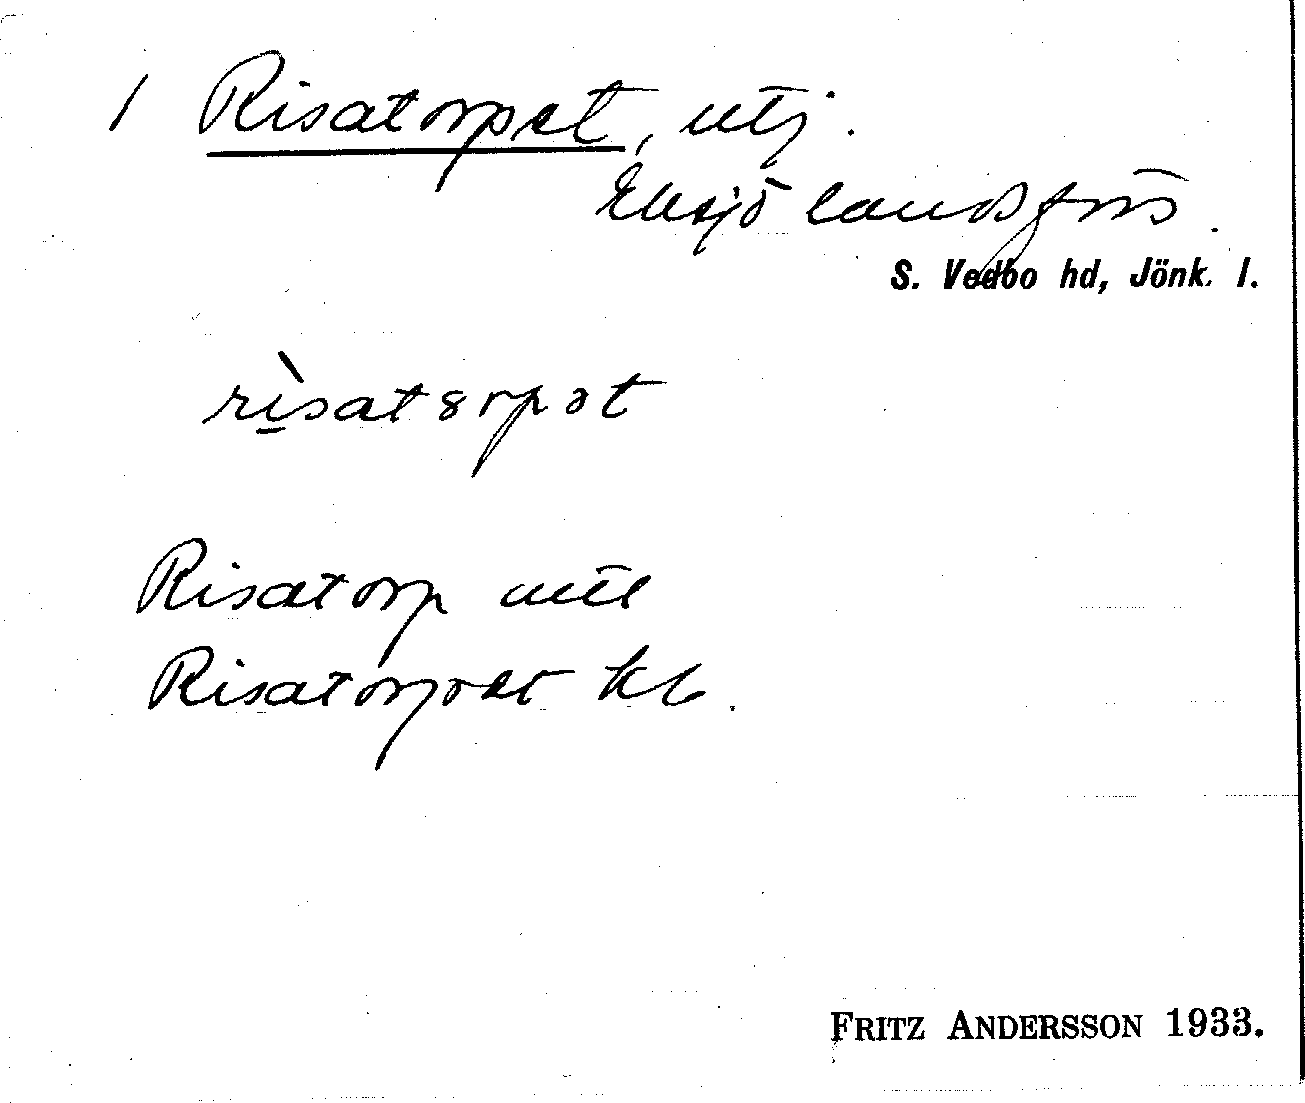 1 Risatorpet, utj.
Eksjö landsförs.
S. Vedbo hd, Jönk. l.
rìsatorpət
Risatorp
Risatorpet kb.
FRITZ ANDERSSON 1933.